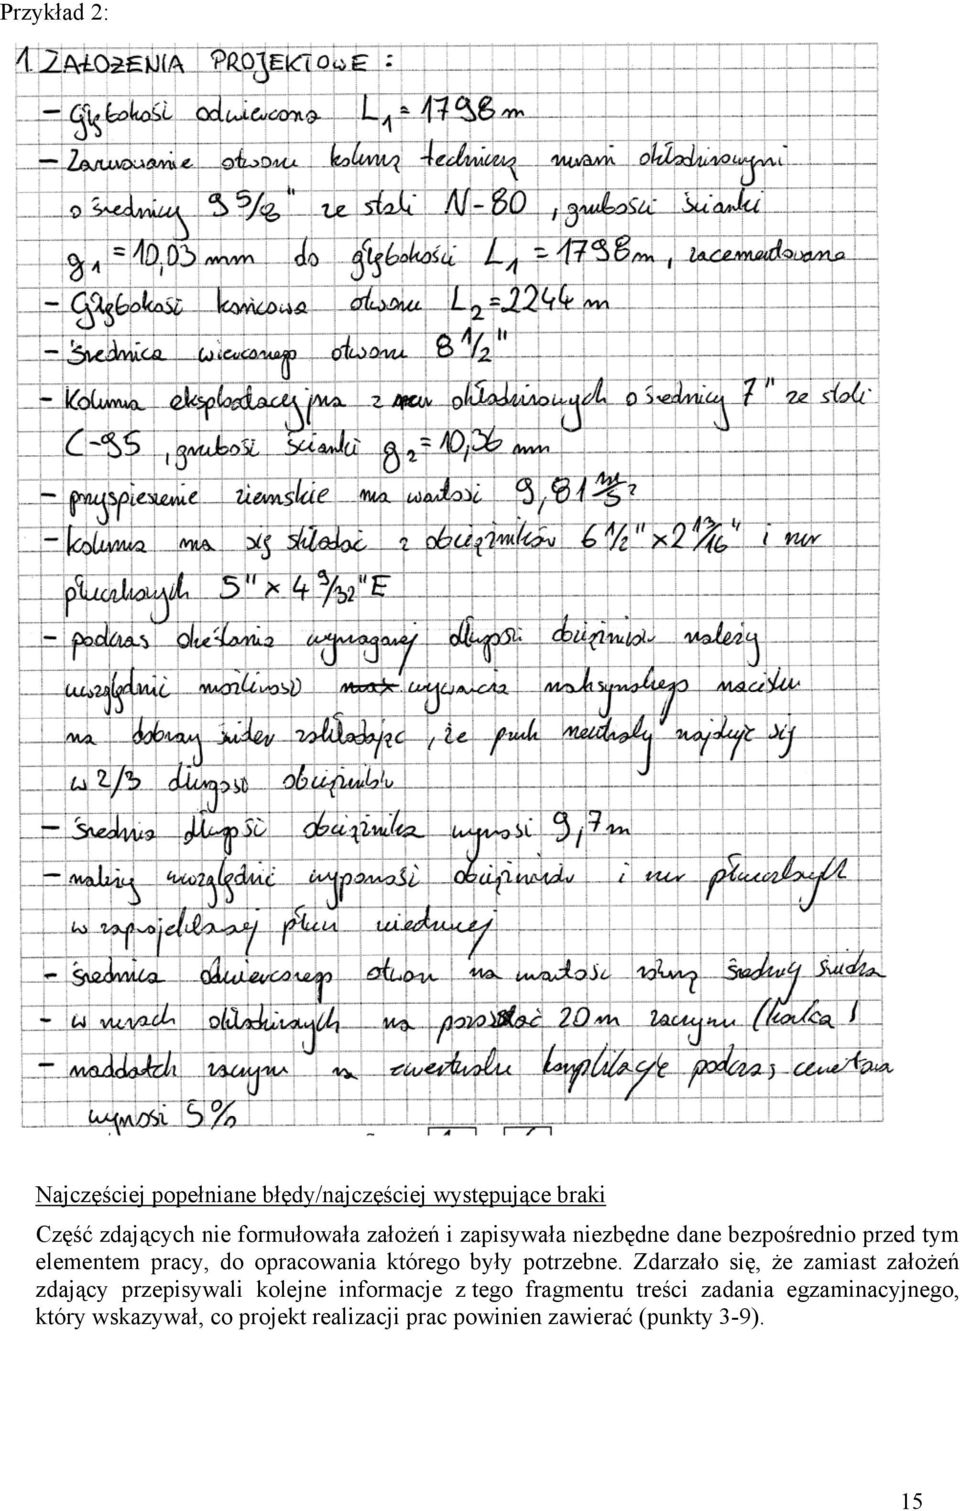 Przykład 2:
1. ZAŁOŻENIA PROJEKTOWE :
- Głębokość odwiercona L1 = 1798 m
- Zarurowanie otworu kolumną techniczną rurami okładzinowymi
o średnicy 9 5/8" ze stali N-80, grubości ścianki
g1 = 10,03 mm do głębokości L1 = 1798 m, zacementowana
- Głębokość końcowa otworu L2 = 2244 m
- Średnica wierconego otworu 8 1/2"
- Kolumna eksploatacyjna z rur okładzinowych o średnicy 7" ze stali
C-95, grubość ścianki g2 = 10,36 mm
- przyspieszenie ziemskie ma wartość 9,81 m/s2
- kolumna ma się składać z obciążników 6 1/2" x 2 13/16" i rur
płuczkowych 5" x 4 9/32" E
- podczas określania wymaganej długości obciążników należy
uwzględnić możliwość wywarcia maksymalnego nacisku
na dobrany świder zakładając, że punkt neutralny znajduje się
w 2/3 długości obciążników
- Średnia długość obciążnika wynosi 9,7 m
- należy uwzględnić wyporność obciążników i rur płuczkowych
w zaprojektowanej płucz wiertniczej
- średnica odwierconego otworu ma wartość równą średnicy świdra
- w rurach okładzinowych ma pozostać 20 m zaczynu (korka)
- naddatek zaczynu na ewentualne komplikacje podczas cementowania
wynosi 5%
Najczęściej popełniane błędy/najczęściej występujące braki
Część zdających nie formułowała założeń i zapisywała niezbędne dane bezpośrednio przed tym
elementem pracy, do opracowania którego były potrzebne. Zdarzało się, że zamiast założeń
zdający przepisywali kolejne informacje z tego fragmentu treści zadania egzaminacyjnego,
który wskazywał, co projekt realizacji prac powinien zawierać (punkty 3-9).
15